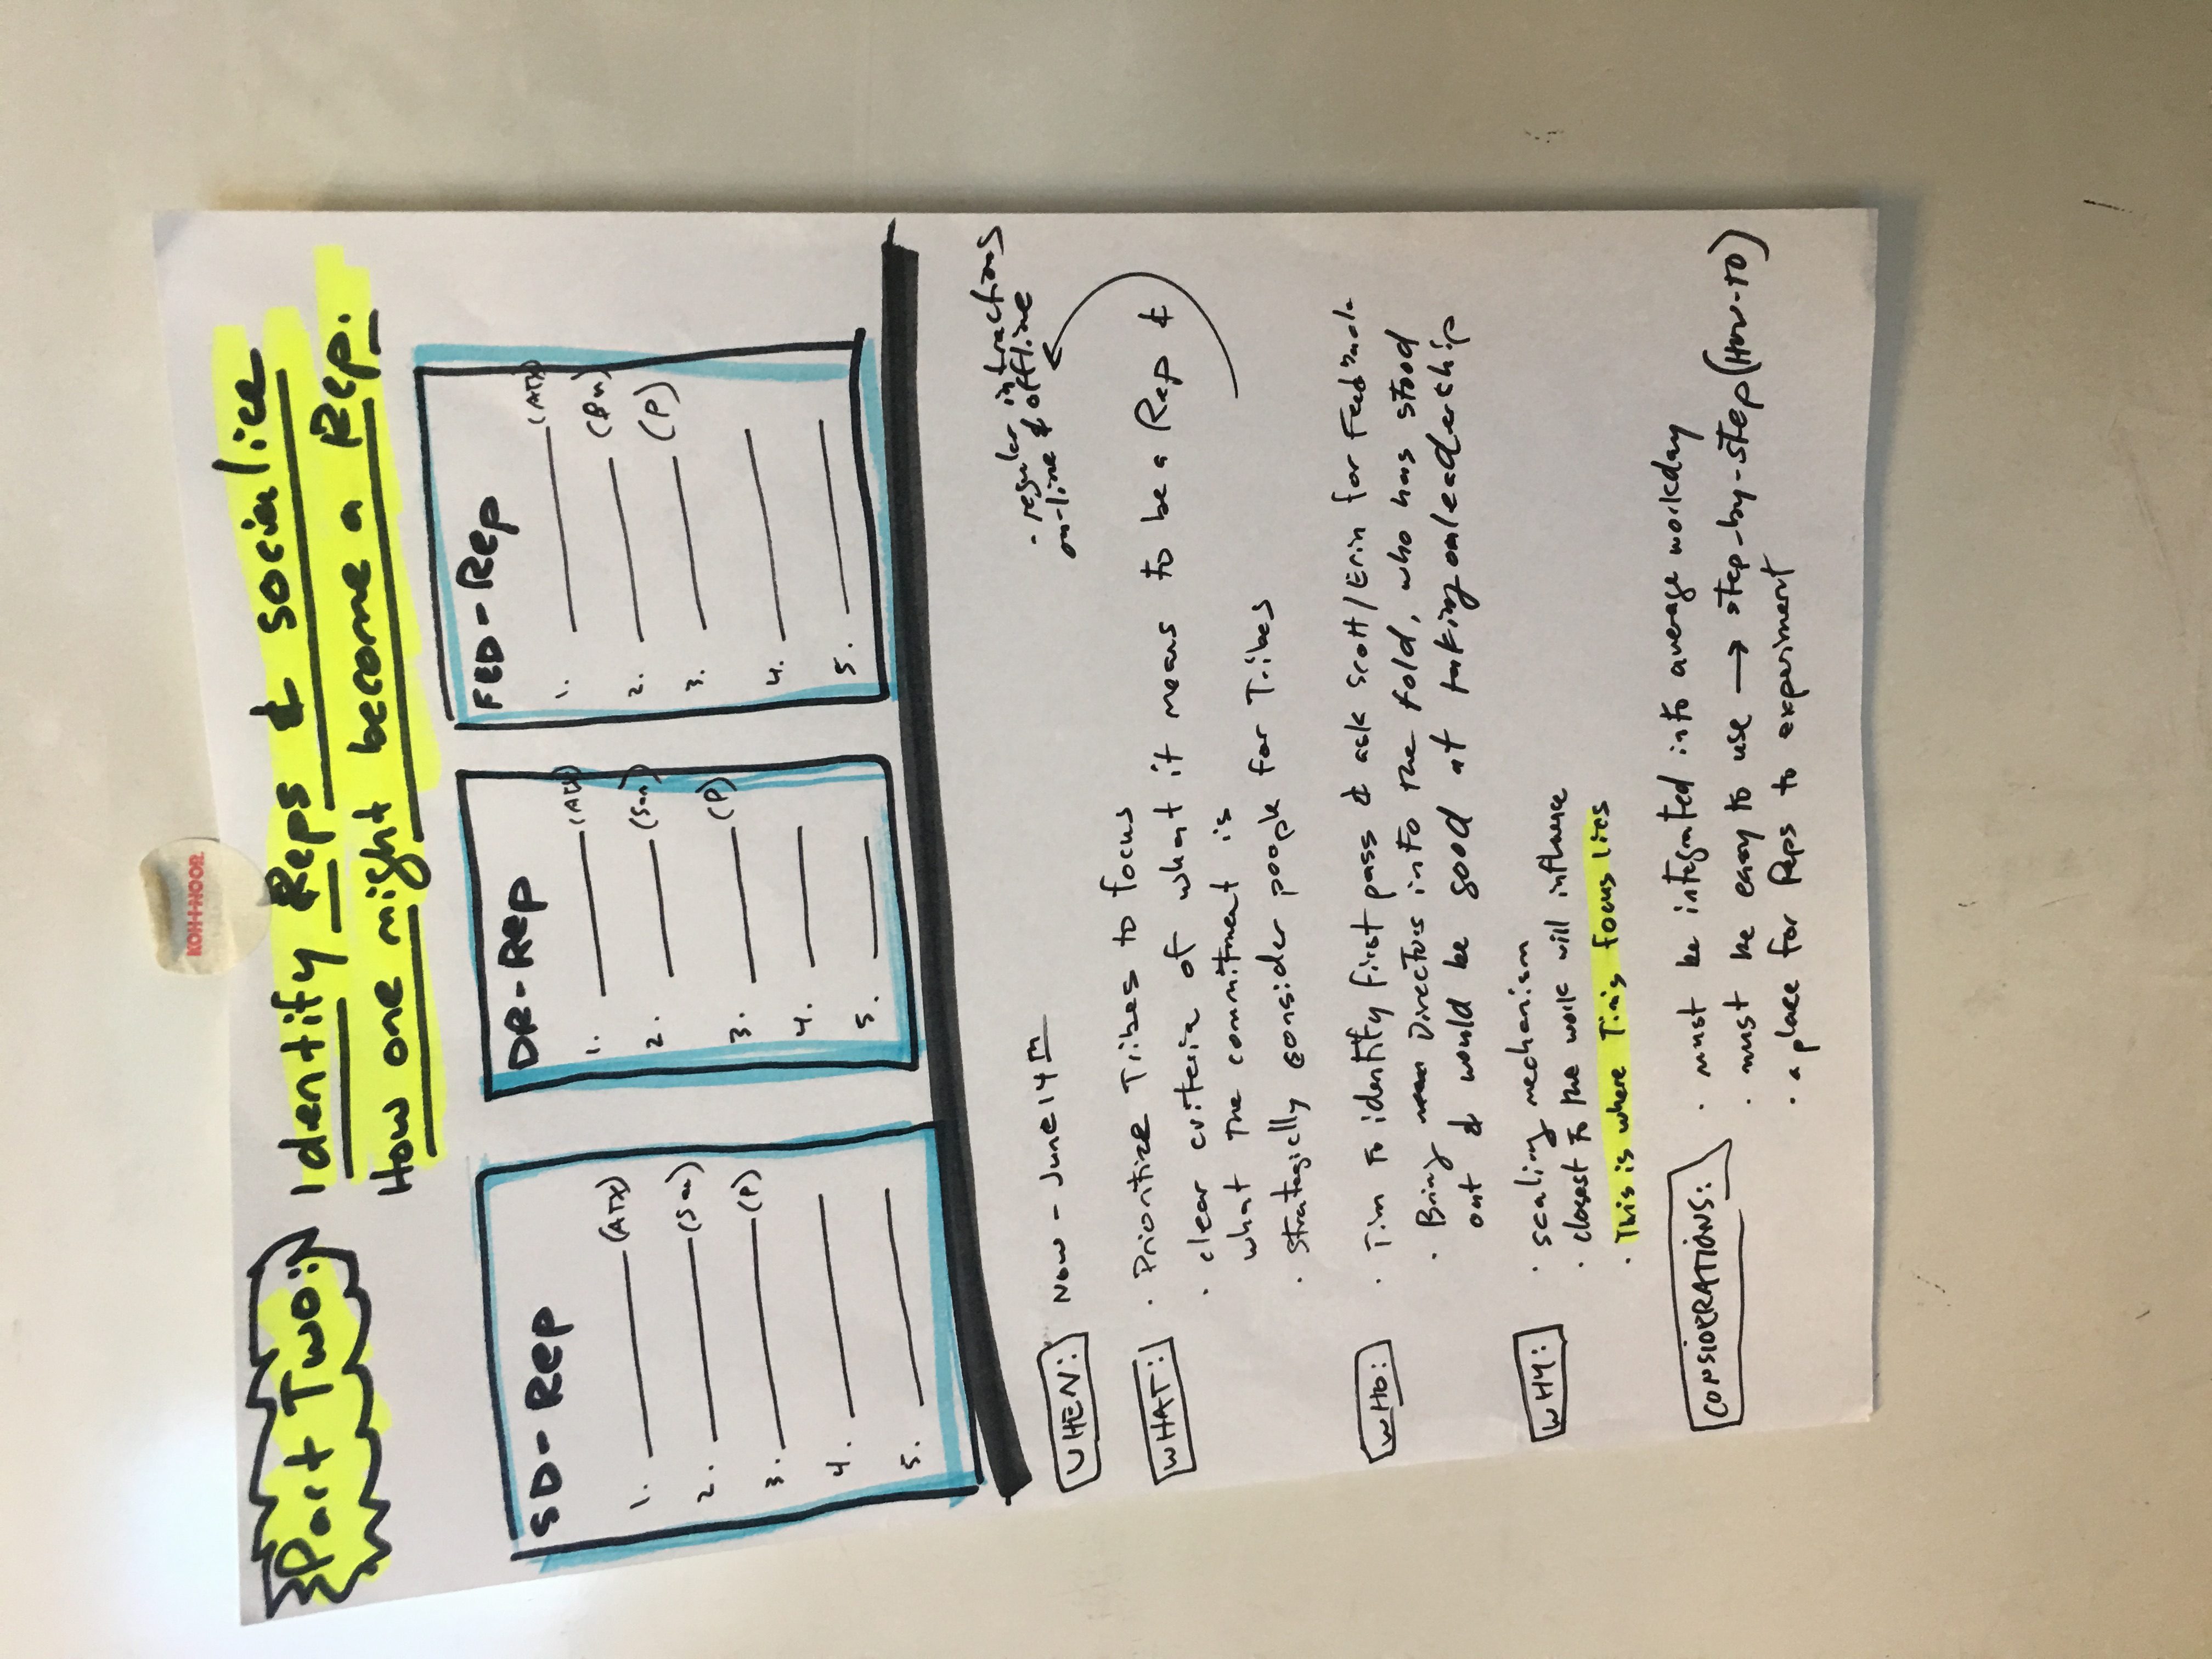 KOH-I-NOOR
Part Two:
Identify Reps & socialice
How one might become a Rep.
SD-Rep
1. (ATX)
2. (San)
3. (P)
4.
5.
DR-Rep
1. (ATX)
2. (San)
3. (P)
4.
5.
FED-Rep
1. (ATX)
2.
3. (P)
4.
5.
WHEN: Now - June 14th
- regular interactions
on-line & offline
WHAT: · Prioritize Tribes to focus
· clear criteria of what it means to be a Rep &
what the commitment is
· strategically consider people for Tribes
WHO: · Tim to identify first pass & ask Scott/Erin for Feedback
· Bring Directors into the fold, who has stood
out & would be good at taking on leadership
WHY: · scaling mechanism
· closest to the work will influence
· This is where Tim's focus lies
CONSIDERATIONS: · must be integrated into average workday
· must be easy to use → step-by-step (How-TO)
· a place for Reps to experiment